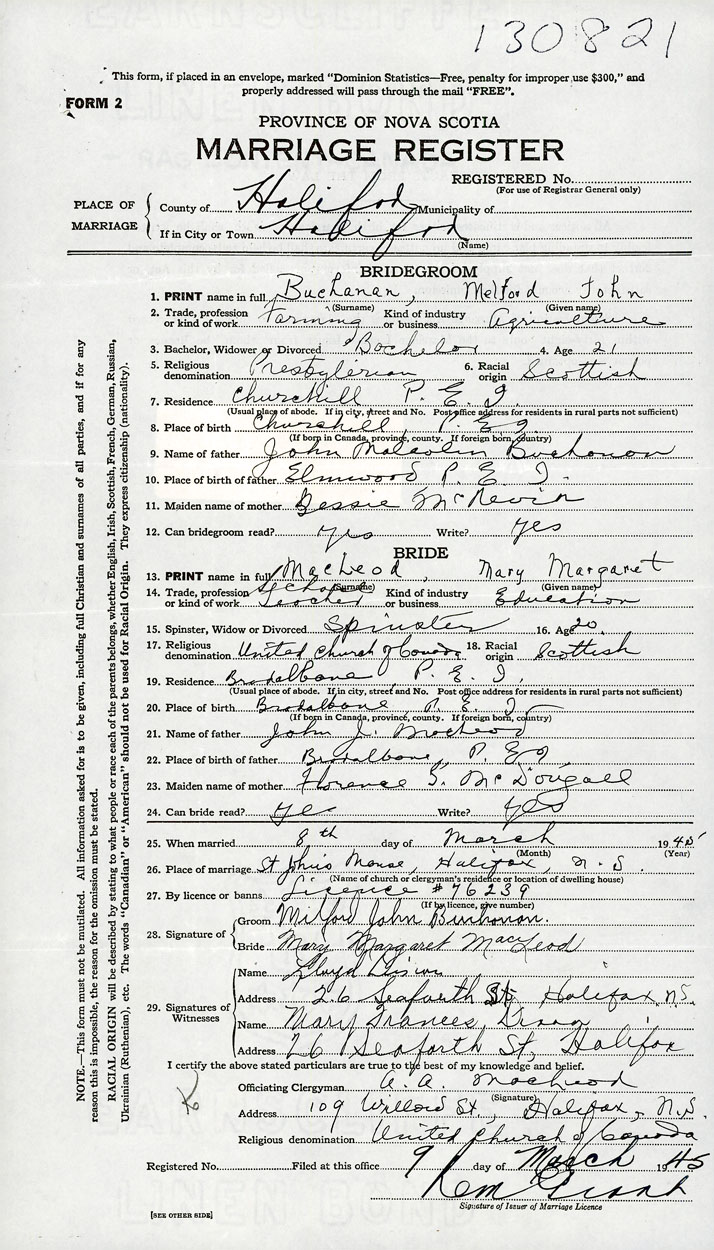 130821
This form, if placed in an envelope, marked "Dominion Statistics—Free, penalty for improper use $300," and
properly addressed will pass through the mail "FREE".
FORM 2
PROVINCE OF NOVA SCOTIA
MARRIAGE REGISTER
REGISTERED No.
(For use of Registrar General only)
PLACE OF MARRIAGE
County of Halifax Municipality of
If in City or Town Halifax
(Name)
BRIDEGROOM
1. PRINT name in full Buchanan, Melford John
(Surname) (Given name)
2. Trade, profession or kind of work Farming Kind of industry or business Agriculture
3. Bachelor, Widower or Divorced Bachelor 4. Age 21
5. Religious denomination Presbyterian 6. Racial origin Scottish
7. Residence Churchill P. E. I.
(Usual place of abode. If in city, street and No. Post office address for residents in rural parts not sufficient)
8. Place of birth Churchill, P. E I
(If born in Canada, province, county. If foreign born, country)
9. Name of father John Malcolm Buchanan
10. Place of birth of father Elmwood P. E. I.
11. Maiden name of mother Bessie McNevin
12. Can bridegroom read? yes Write? yes
BRIDE
13. PRINT name in full MacLeod, Mary Margaret
(Surname) (Given name)
14. Trade, profession or kind of work School Teacher Kind of industry or business Education
15. Spinster, Widow or Divorced Spinster 16. Age 20.
17. Religious denomination United Church of Canada 18. Racial origin Scottish
19. Residence Bradalbane, P. E. I.
(Usual place of abode. If in city, street and No. Post office address for residents in rural parts not sufficient)
20. Place of birth Bradalbane, P. E. I
(If born in Canada, province, county. If foreign born, country)
21. Name of father John J. MacLeod
22. Place of birth of father Bradalbane, P. E I,
23. Maiden name of mother Florence S. McDougall
24. Can bride read? yes Write? yes
25. When married 8th day of March 1945
(Month) (Year)
26. Place of marriage St John's Manse, Halifax, N. S.
(Name of church or clergyman's residence or location of dwelling house)
27. By licence or banns Licence # 76239
(If by licence, give number)
28. Signature of
Groom Milford John Buchanan.
Bride Mary Margaret MacLeod
29. Signatures of Witnesses
Name Lloyd
Address 26 Seaforth St, Halifax N.S.
Name Mary Frances
Address 26 Seaforth St, Halifax
I certify the above stated particulars are true to the best of my knowledge and belief.
Officiating Clergyman A. A. MacLeod
(Signature)
Address 109 Willow St., Halifax, N.S.
Religious denomination United Church of Canada
Registered No. Filed at this office 9 day of March 1945
Grant
Signature of Issuer of Marriage Licence
[SEE OTHER SIDE]
NOTE.—This form must not be mutilated. All information asked for is to be given, including full Christian and surnames of all parties, and if for any
reason this is impossible, the reason for the omission must be stated.
RACIAL ORIGIN will be described by stating to what people or race each of the parents belongs, whether English, Irish, Scottish, French, German, Russian,
Ukrainian (Ruthenian), etc. The words "Canadian" or "American" should not be used for Racial Origin. They express citizenship (nationality).